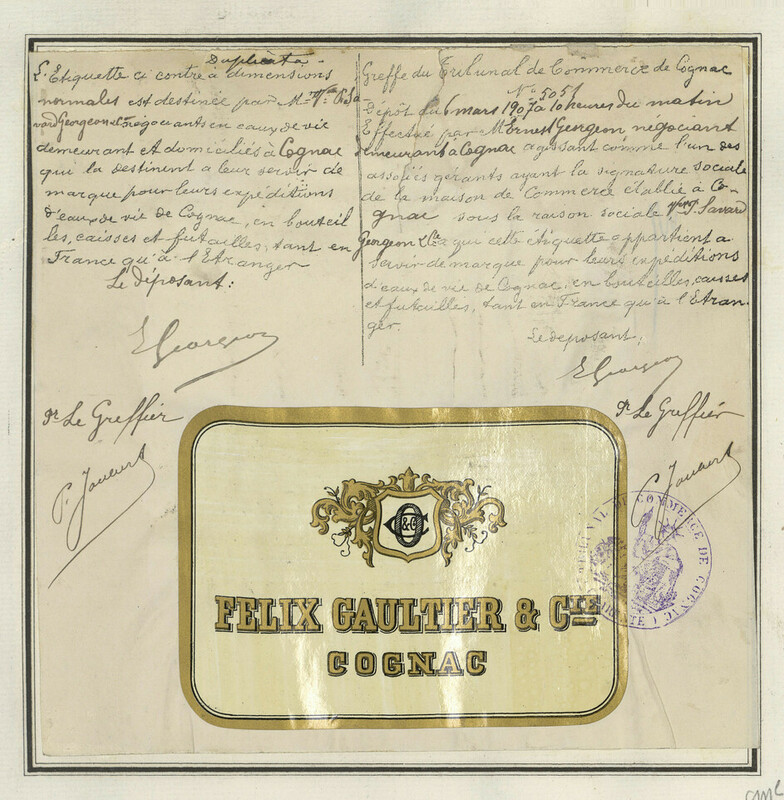 Duplicata
L'Etiquette ci contre à dimensions
normales est destinée par
vard Georgeon et négociants en eaux de vie
demeurant et domiciliés à Cognac
qui la destinent a leur servir de
marque pour leurs expéditions
d'eaux de vie de Cognac, en bouteil
les, caisses et futailles, tant en
France qu'à l'Etranger
Le déposant:
E Georgeon
Pr Le Greffier
Greffe du Tribunal de Commerce de Cognac
No 5051
Dépôt du 6 mars 1907 à 10 heures du matin
Effectué par M Ernest Georgeon, négociant
demeurant à Cognac agissant comme l'un des
associés gérants ayant la signature sociale
de la maison de Commerce établie à Co-
gnac sous la raison sociale Savard
Georgeon & Cie a qui cette étiquette appartient a
servir de marque pour leurs expéditions
d'eaux de vie de Cognac, en bouteilles, caisses
et futailles, tant en France qu'à l'Etran-
ger.
Le deposant,
E Georgeon
Pr Le Greffier
C & Co
FELIX GAULTIER & CIE
COGNAC
TRIBUNAL DE COMMERCE DE COGNAC